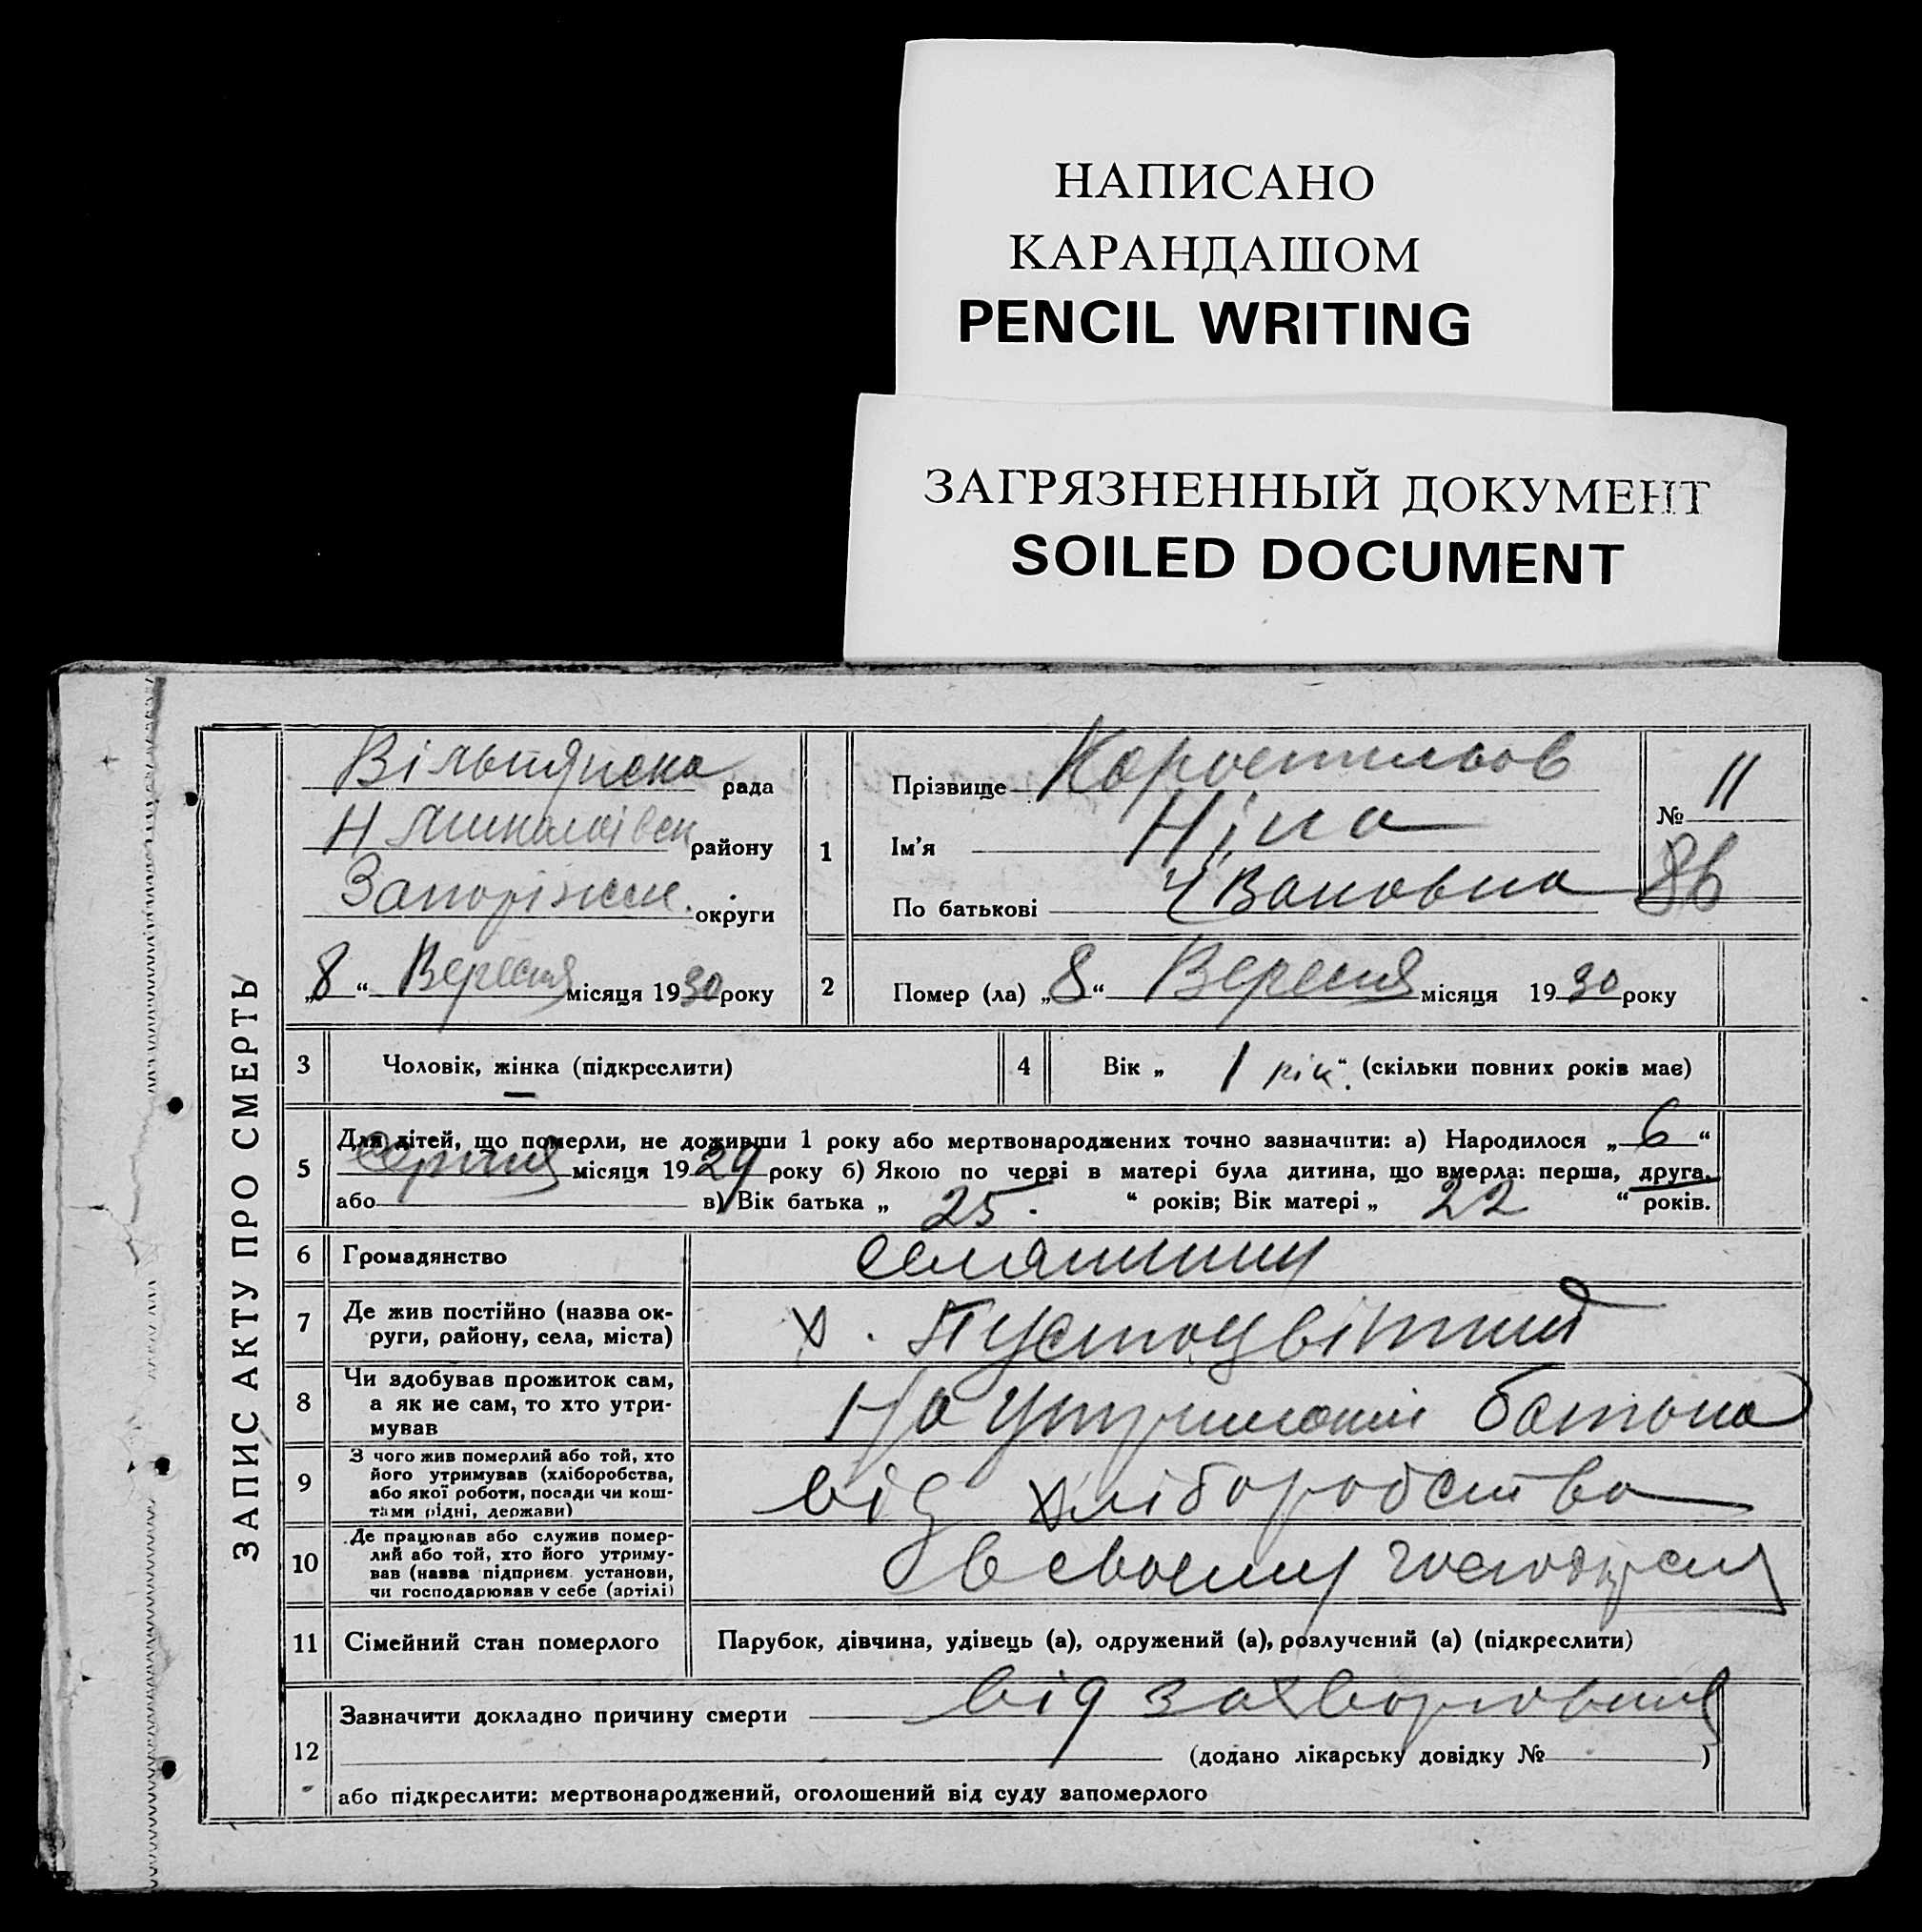 НАПИСАНО
КАРАНДАШОМ
PENCIL WRITING
ЗАГРЯЗНЕННЫЙ ДОКУМЕНТ
SOILED DOCUMENT
ЗАПИС АКТУ ПРО СМЕРТЬ
рада
району
Запоріжж. округи
„8“ Вересня місяця 1930 року
1
Прізвище Коростильов
Ім'я Ніна
По батькові Івановна
№ 11
86
2
Помер (ла) „8“ Вересня місяця 1930 року
3 Чоловік, жінка (підкреслити)
4 Вік „ 1 рік “ (скільки повних років має)
5 Для дітей, що померли, не доживши 1 року або мертвонароджених точно зазначити: а) Народилося „6“
Серпня місяця 1929 року б) Якою по черзі в матері була дитина, що вмерла: перша, друга,
або в) Вік батька „ 25. “ років; Вік матері „ 22 “ років.
6 Громадянство селянин
7 Де жив постійно (назва ок-
руги, району, села, міста)
х. Пустоцвітний
8 Чи здобував прожиток сам,
а як не сам, то хто утри-
мував
На утриманні батька
9 З чого жив померлий або той, хто
його утримував (хліборобства,
або якої роботи, посади чи кош-
тами рідні, держави)
від хліборобства
10 Де працював або служив помер-
лий або той, хто його утриму-
вав (назва підприєм. установи,
чи господарював у себе (артілі)
в своєму господрсту
11 Сімейний стан померлого Парубок, дівчина, удівець (а), одружений (а), розлучений (а) (підкреслити)
12 Зазначити докладно причину смерти від захворювання
(додано лікарську довідку № )
або підкреслити: мертвонароджений, оголошений від суду запомерлого